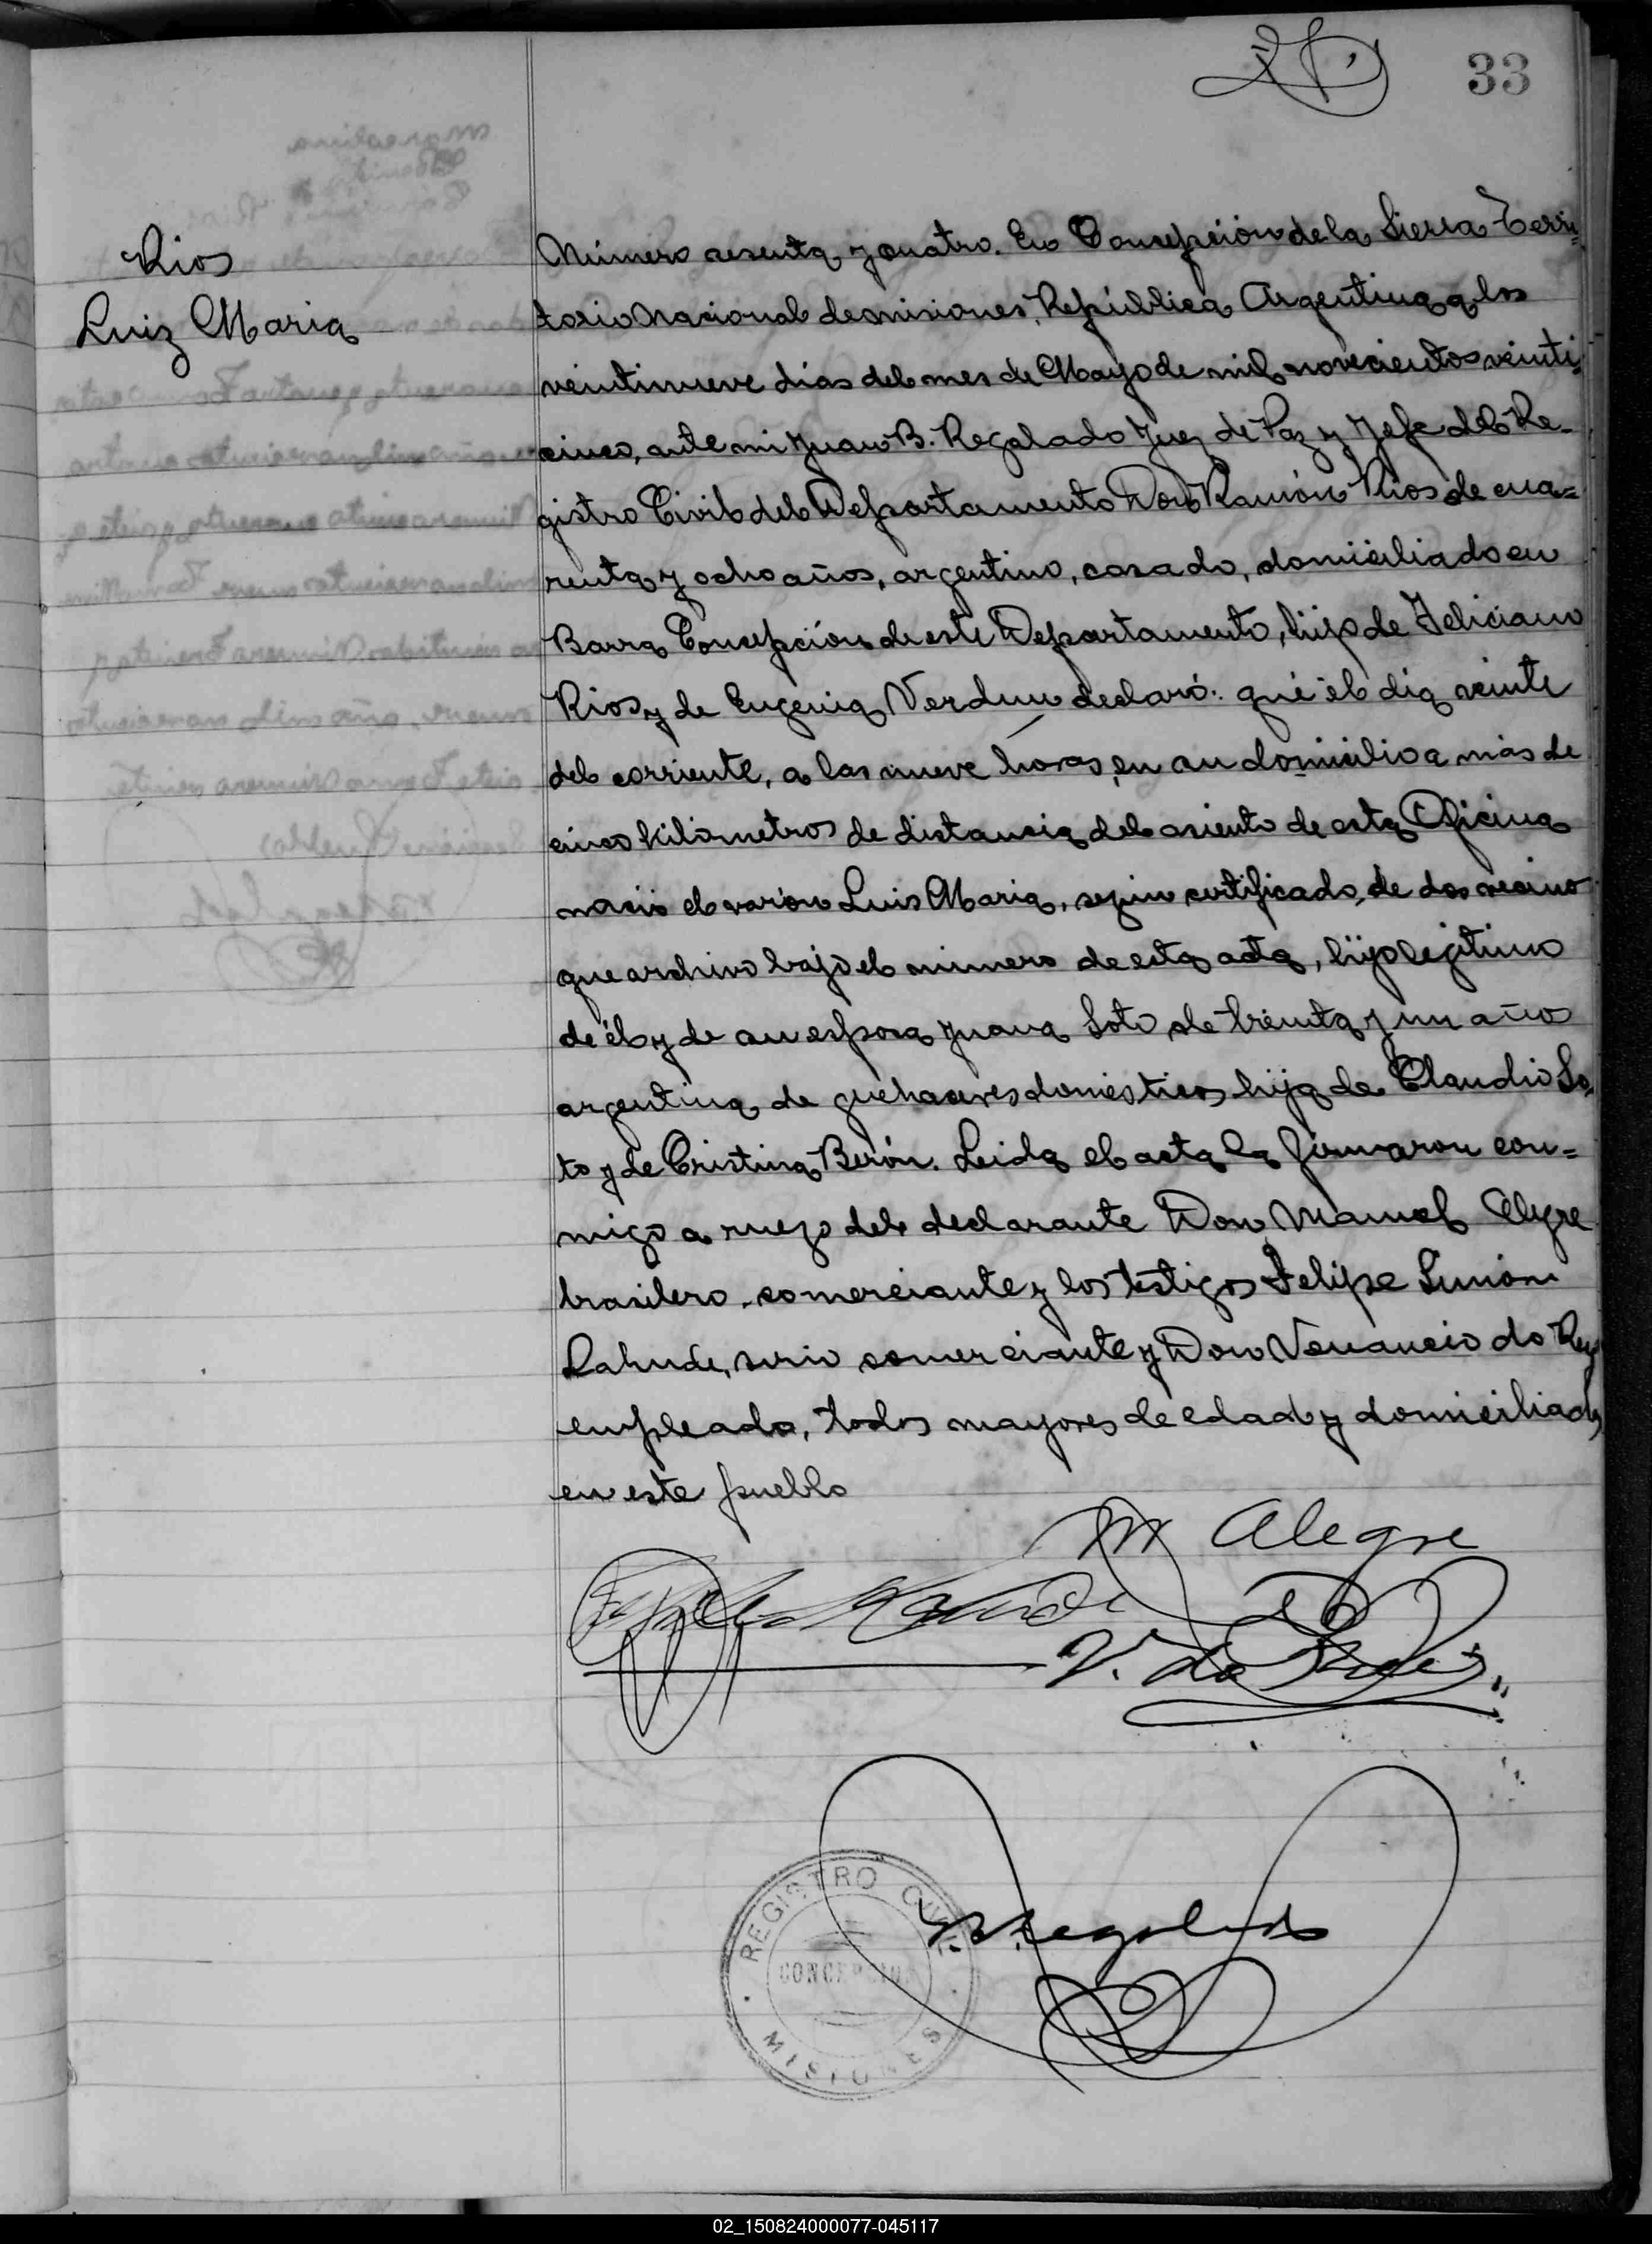 33
Rios
Luiz Maria
Número sesenta y cuatro. En Concepción de la Sierra Terri-
torio Nacional de misiones, República Argentina a los
veintinueve dias del mes de Mayo de mil novecientos veinti
cinco, ante mi Juan B. Regalado Juez de Paz y Jefe del Re-
gistro Civil del Departamento Don Ramón Rios de cua=
renta y ocho años, argentino, casado, domiciliado en
Barra Concepción de este Departamento, hijo de Feliciano
Rios y de Eugenia Verdun declaró: qué el dia veinte
del corriente, a las nueve horas, en su domicilio a más de
cinco kilómetros de distancia del asiento de esta Oficina
nació el varón Luis Maria, según certificado de dos vecino
que archivo bajo el número de esta acta, hijo legítimo
de él y de su esposa Juana Soto de treinta y un años
argentina de quehaceres domésticos hija de Claudio So
to y de Cristina Berón. Leida el acta la firmaron con=
migo a ruego del declarante Don Manuel Alegre
brasilero, comerciante y los testigos Felipe Simón
Rahude, sirio comerciante y Don Venancio do Rey
empleado, todos mayores de edad y domiciliados
en este pueblo
M Alegre
V. do Rey
Regalado
REGISTRO CIVIL
CONCEPCION
MISIONES
02_150824000077-045117